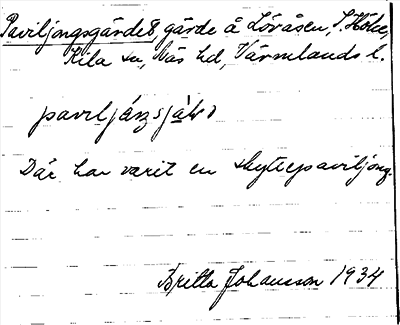 Paviljongsgärdet, gärde å Lövåsen, S. Höten,
Kila sn, Näs hd, Värmlands l.
Där har varit en skyttepaviljong.
Britta Johansson 1934